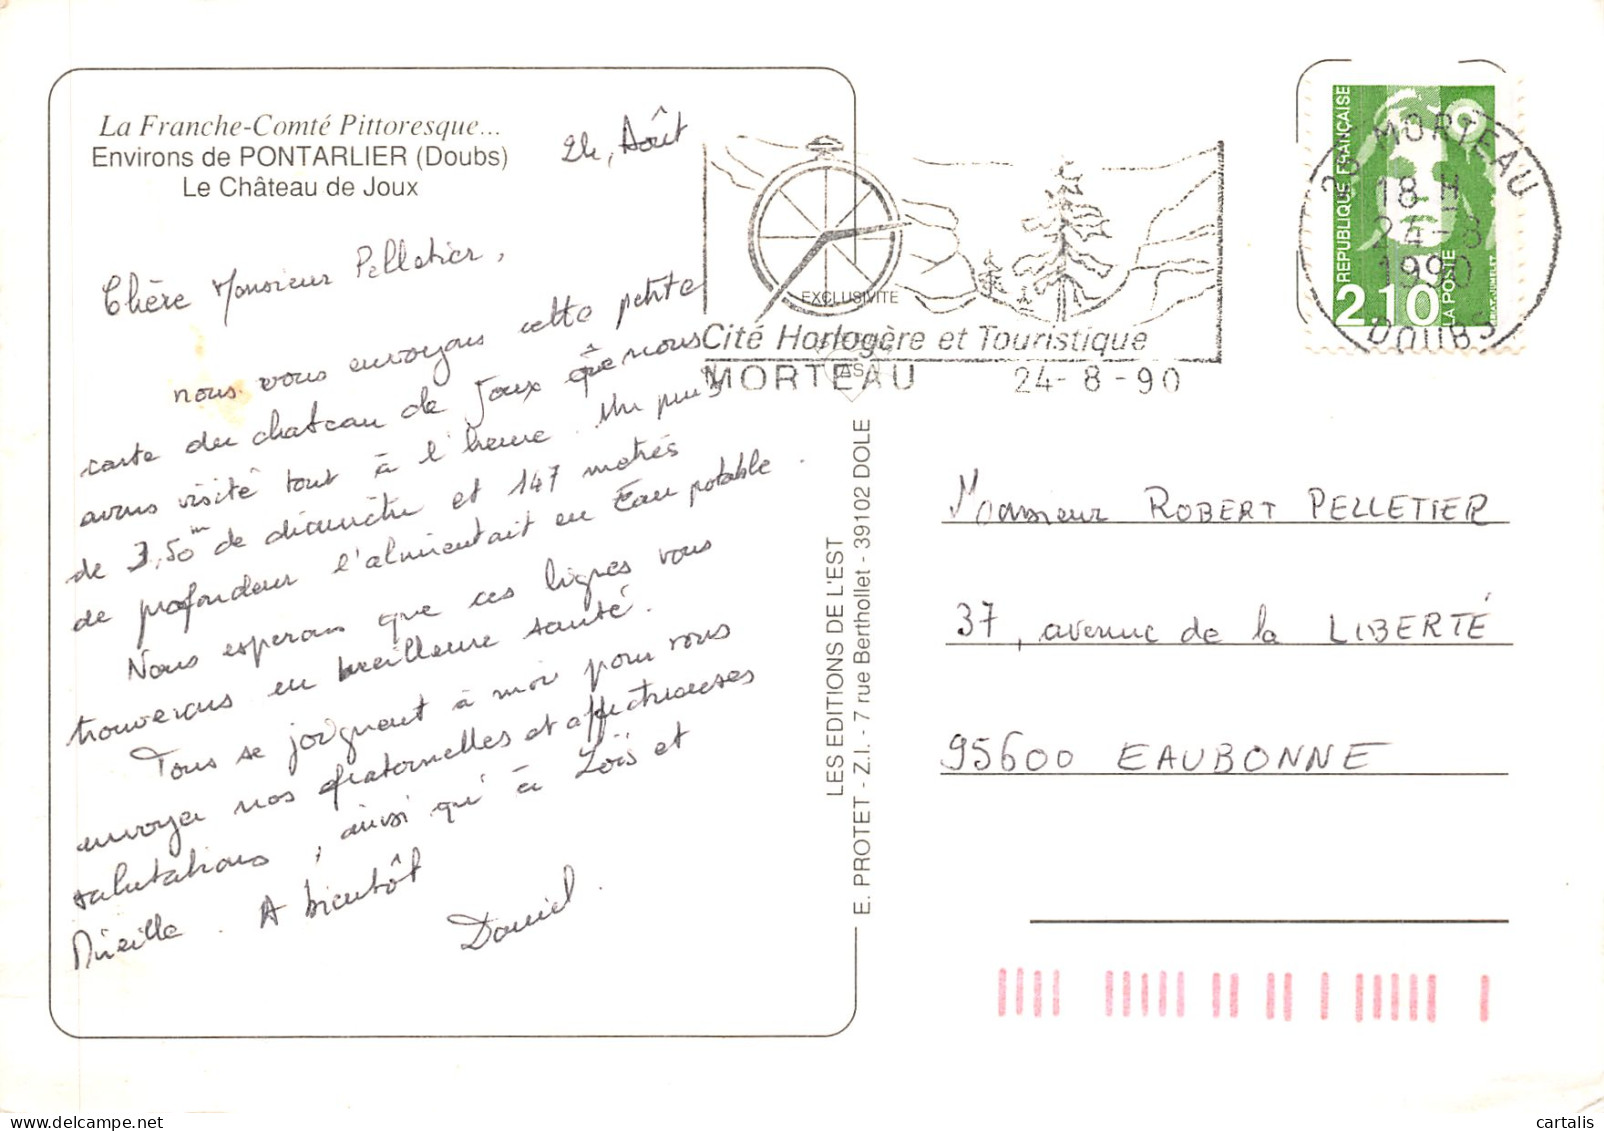 La Franche-Comté Pittoresque...
Environs de PONTARLIER (Doubs)
Le Château de Joux
24, Août
Chère Monsieur Pelletier,
nous vous envoyons cette petite
carte du chateau de Joux que nous
avons visité tout à l'heure. Un puits
de 3,50m de dimunitu et 147 metres
de profondeur l'alimentait en Eau potable.
Nous esperons que ces lignes vous
trouverons en meilleure santé.
Tous se joignent à moi pour vous
envoyer nos fraternelles et affectueuses
salutations, ainsi qu'à Loïs et
Mireille. A bientôt
Daniel.
EXCLUSIVITE
Cité Horlogère et Touristique
MORTEAU 24-8-90
25 MORTEAU
18 H
24-8
1990
DOUBS
REPUBLIQUE FRANÇAISE
2,10
LA POSTE
LES EDITIONS DE L'EST
E. PROTET - Z.I. - 7 rue Berthollet - 39102 DOLE
Monsieur ROBERT PELLETIER
37, avenue de la LIBERTÉ
95600 EAUBONNE
cartalis
delcampe.net